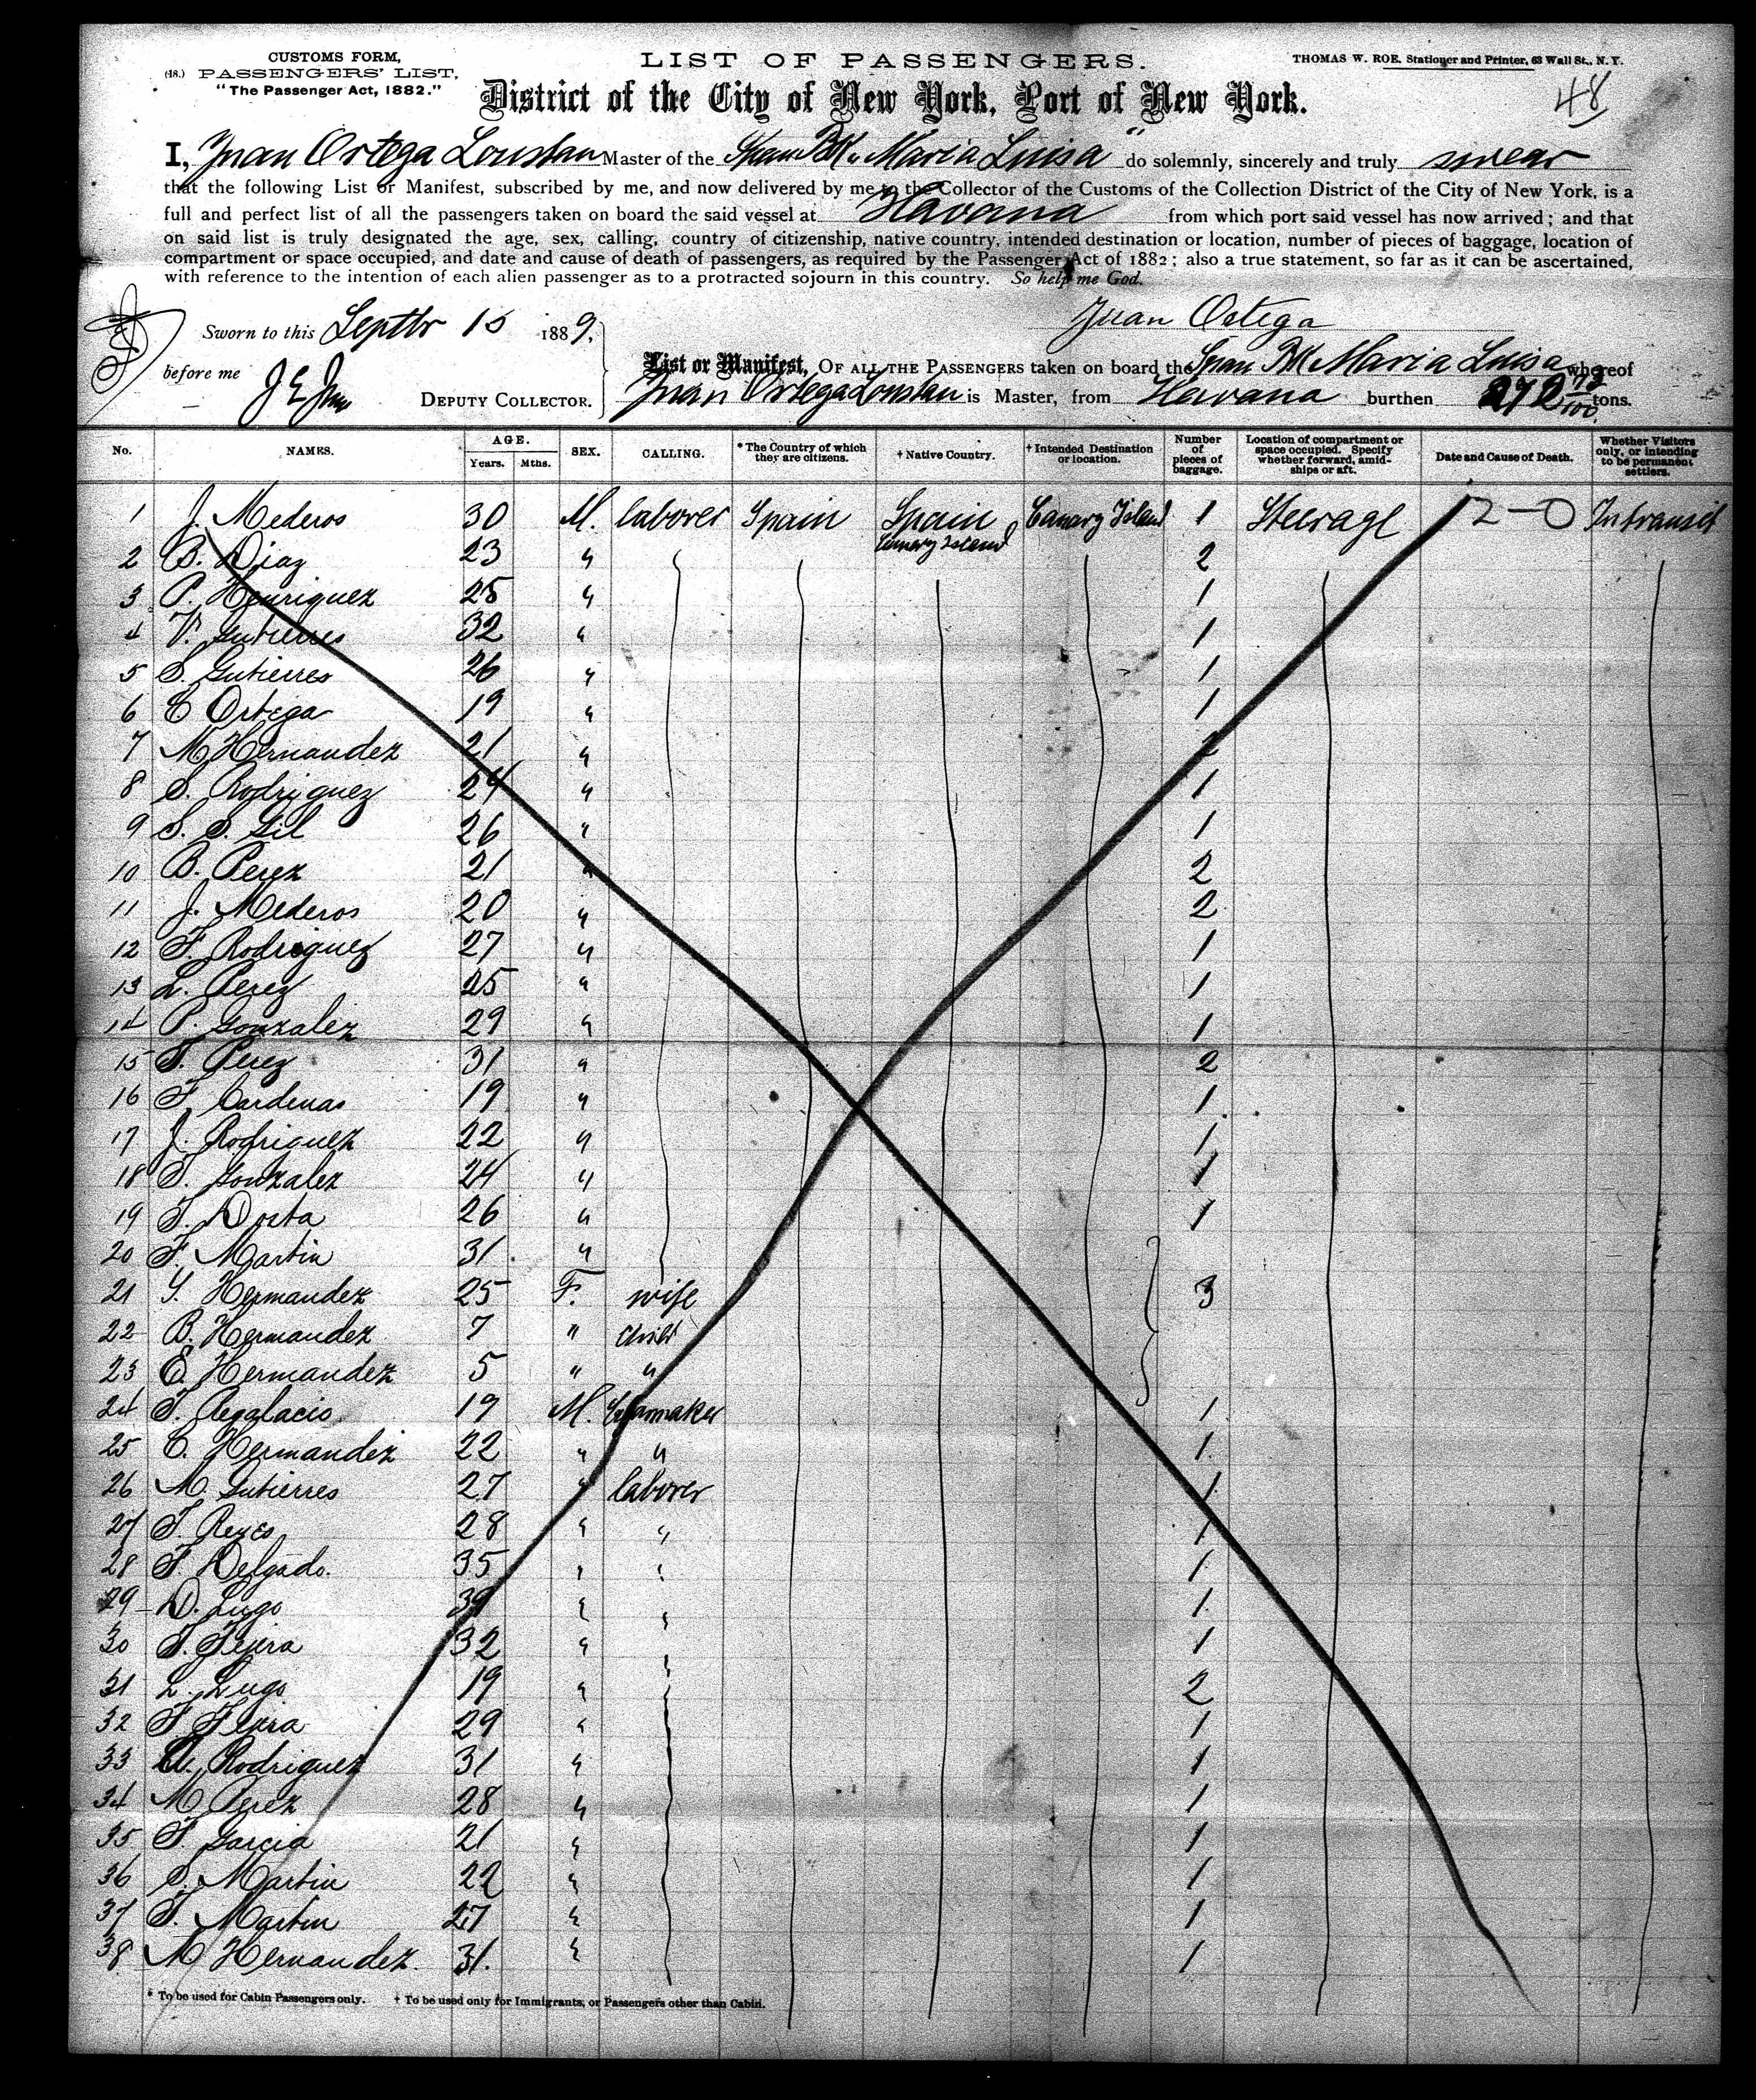 CUSTOMS FORM,
(48.) PASSENGERS' LIST,
"The Passenger Act, 1882."
LIST OF PASSENGERS.
THOMAS W. ROE, Stationer and Printer, 63 Wall St., N. Y.
District of the City of New York, Port of New York.
48
I, Juan Ortega Loustan Master of the Span Bk "Maria Luisa" do solemnly, sincerely and truly swear
that the following List or Manifest, subscribed by me, and now delivered by me to the Collector of the Customs of the Collection District of the City of New York, is a
full and perfect list of all the passengers taken on board the said vessel at Havana from which port said vessel has now arrived; and that
on said list is truly designated the age, sex, calling, country of citizenship, native country, intended destination or location, number of pieces of baggage, location of
compartment or space occupied, and date and cause of death of passengers, as required by the Passenger Act of 1882; also a true statement, so far as it can be ascertained,
with reference to the intention of each alien passenger as to a protracted sojourn in this country. So help me God.
Juan Ortega
Sworn to this Septbr 15 1889,
before me
DEPUTY COLLECTOR.
List or Manifest, OF ALL THE PASSENGERS taken on board the Span Bk Maria Luisa whereof
Juan Ortega Loustan is Master, from Havana burthen 272 73/100 tons.
No. NAMES. AGE. Years. Mths. SEX. CALLING. * The Country of which they are citizens. † Native Country. † Intended Destination or location. Number of pieces of baggage. Location of compartment or space occupied. Specify whether forward, amidships or aft. Date and Cause of Death. Whether Visitors only, or intending to be permanent settlers.
1 J. Mederos 30 M. laborer Spain Spain Canary Island Canary Island 1 Steerage 12-0 In transit
2 B. Diaz 23 " 2
3 P. Henriquez 25 " 1
4 V. Gutierres 32 " 1
5 S. Gutierres 26 " 1
6 C Ortega 19 " 1
7 M Hernandez 21 " 2
8 S. Rodriguez 24 " 1
9 S. S. Gil 26 " 1
10 B. Perez 21 " 2
11 J. Mederos 20 " 2
12 F. Rodriguez 27 " 1
13 L. Perez 25 " 1
14 P. Gonzalez 29 " 1
15 T. Perez 31 " 2
16 F. Cardenas 19 " 1
17 J. Rodriguez 22 " 1
18 T. Gonzalez 24 " 1
19 T. Dorta 26 " 1
20 F. Martin 31 "
21 Y. Hernandez 25 F. wife 3
22 B. Hernandez 7 " child
23 E. Hernandez 5 " "
24 T. 19 M. 1
25 C. Hernandez 22 " " 1
26 M. Gutierres 27 " laborer 1
27 T. Reyes 28 " " 1
28 F. Delgado. 35 " " 1
29 D. Lugo 39 " " 1
30 T. Tejera 32 " 1
31 L. Lugo 19 " 2
32 F Tejera 29 " 1
33 Rodriguez 31 " 1
34 M Perez 28 " 1
35 F. Garcia 21 " 1
36 S. Martin 22 " 1
37 T. Martin 27 " 1
38 M Hernandez. 31. " 1
* To be used for Cabin Passengers only. † To be used only for Immigrants, or Passengers other than Cabin.